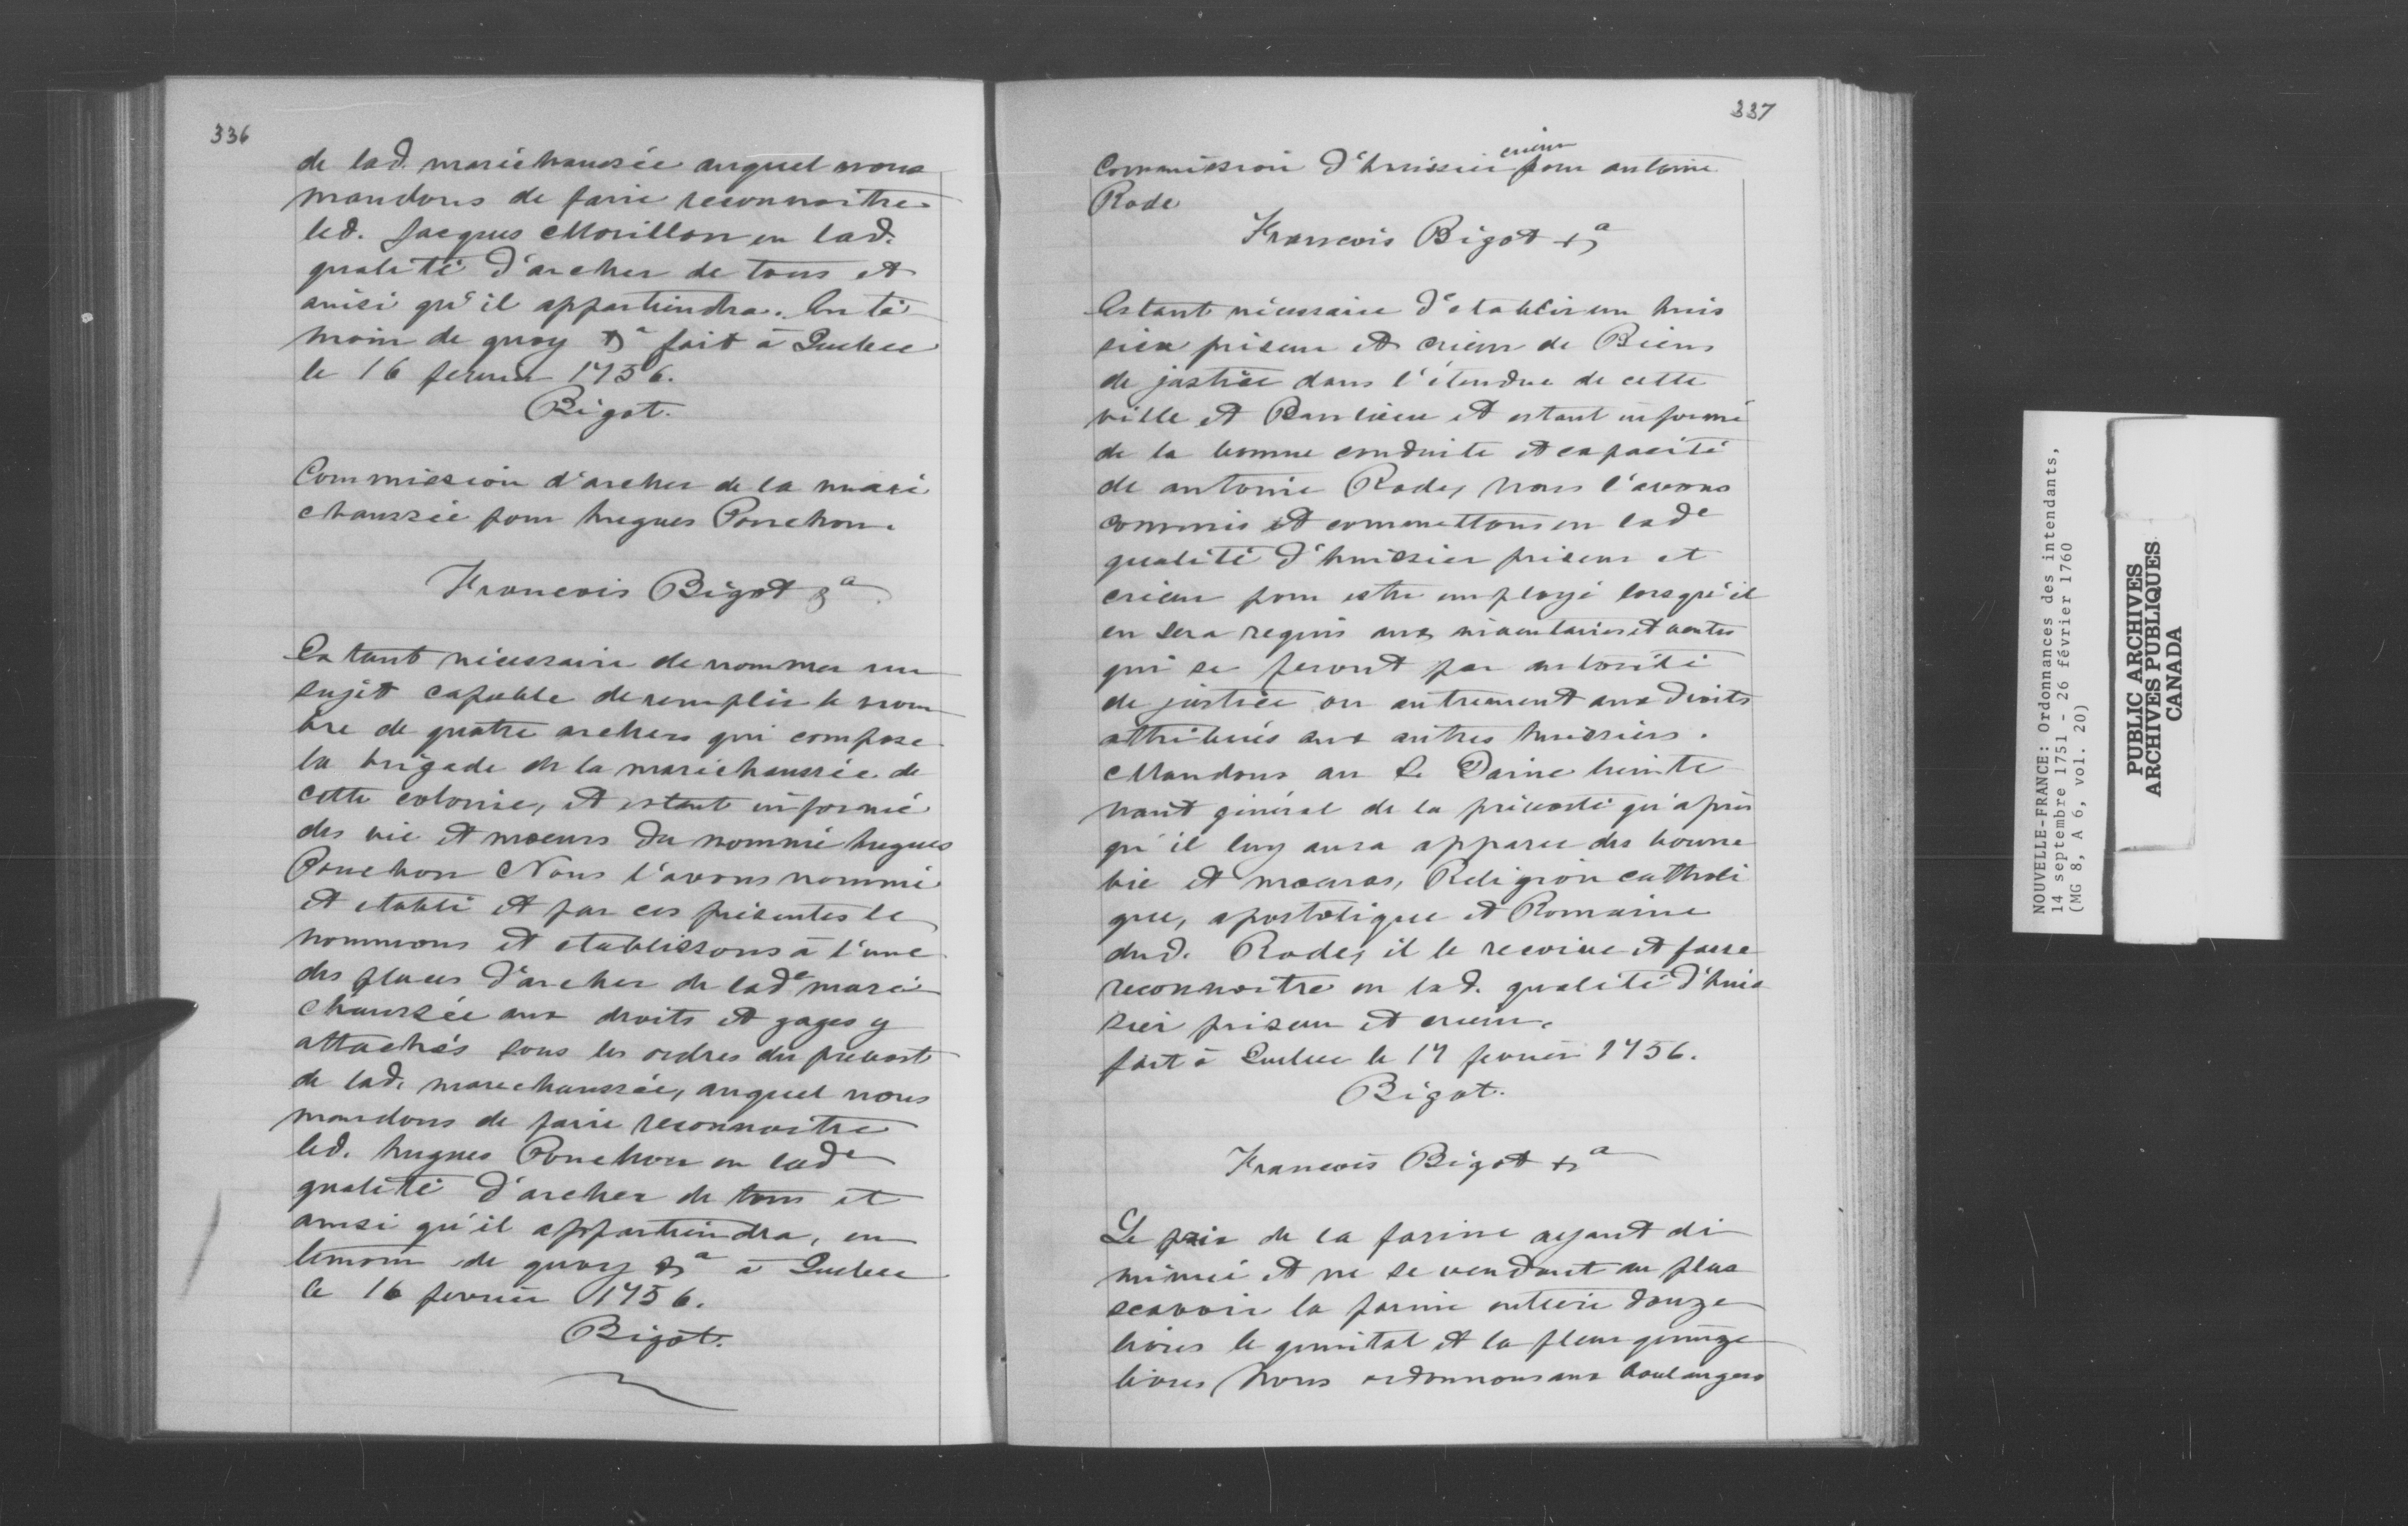 336
de lad. maréchaussée auquel nous
mandons de faire reconnoitre
led. Jacques Morillon en lad.
qualité d'archer de tous et
ainsi qu'il appartiendra. En té
moin de quoy &a fait à Quebec
le 16 fevrier 1756.
Bigot.
Commission d'archer de la maré
chaussée pour hugues Ponchon.
Francois Bigot &a
Estant nécessaire de nommer un
sujet capable de remplir le nom
bre de quatre archers qui compose
la brigade de la maréchaussée de
cette colonie, et estant informé
des vie et moeurs du nommé hugues
Ponchon Nous l'avons nommé
et etabli et par ces présentes le
nommons et etablissons à l'une
des places d'archer de lade maré
chaussée aux droits et gages y
attachés sous les ordres du prevost
de lad. marechaussée, auquel nous
mandons de faire reconnoitre
led. hugues Ponchon en lade
qualité d'archer de tous et
ainsi qu'il appartiendra, en
temoin de quoy &a à Quebec
le 16 fevrier 1756.
Bigot.
337
Commission d'huissier crieur pour antoine
Rode
Francois Bigot &a
Estant nécessaire d'etablir un huis
sier priseur et crieur de Biens
de justice dans l'étendue de cette
ville et Banlieue et estant informé
de la bonne conduite et capacité
de antoine Rode, nous l'avons
commis et commettons en lade
qualité d'huissier priseur et
crieur pour estre employé lorsqu'il
en sera requis aux inventaires et ventes
qui se feront par autorité
de justice ou autrement aux droits
attribués aux autres huissiers.
Mandons au Sr Daine lieute
nant général de la prévosté qu'après
qu'il luy aura apparu des bonne
vie et moeurs, Religion catholi
que, apostolique et Romaine
dud. Rode, il le reçoive et fasse
reconnoitre en lad. qualité d'huis
sier priseur et crieur.
fait à Quebec le 17 fevrier 1756.
Bigot.
Francois Bigot &a
Le prix de la farine ayant di
minué et ne se vendant au plus
scavoir la farine entiere douze
livres le quintal et la fleur quinze
livres, Nous ordonnons aux boulangers
NOUVELLE-FRANCE: Ordonnances des intendants,
14 septembre 1751 - 26 février 1760
(MG 8, A 6, vol. 20)
PUBLIC ARCHIVES
ARCHIVES PUBLIQUES
CANADA